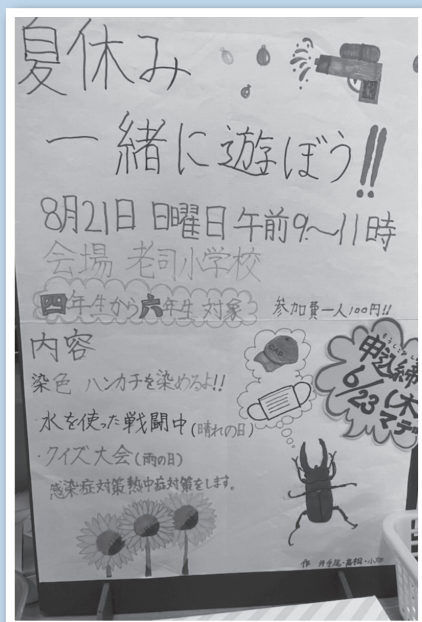 夏休み
一緒に遊ぼう!!
8月21日 日曜日 午前9〜11時
会場 老司小学校
四年生から六年生 対象
参加費一人100円!!
申込締
6/23(木)
マデ
内容
染色 ハンカチを染めるよ!!
・水を使った戦闘中(晴れの日)
・クイズ大会(雨の日)
感染症対策熱中症対策をします。
作